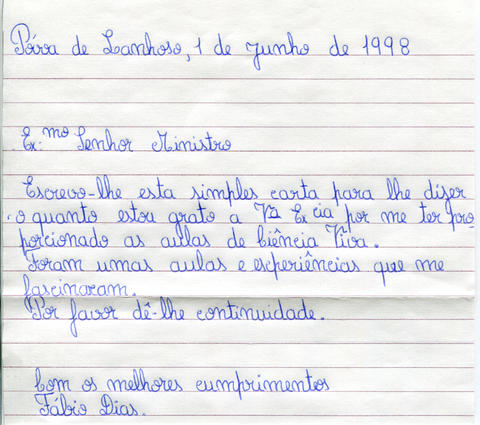 Póvoa de Lanhoso, 1 de Junho de 1998
Ex.mo Senhor Ministro
Escrevo-lhe esta simples carta para lhe diser
o quanto estou grato a Vª Ex cia por me ter pro-
porcionado as aulas de Ciência Viva.
Foram umas aulas e esperiências que me
fascinaram.
Por favor dê-lhe continuidade.
Com os melhores cumprimentos
Fábio Dias.